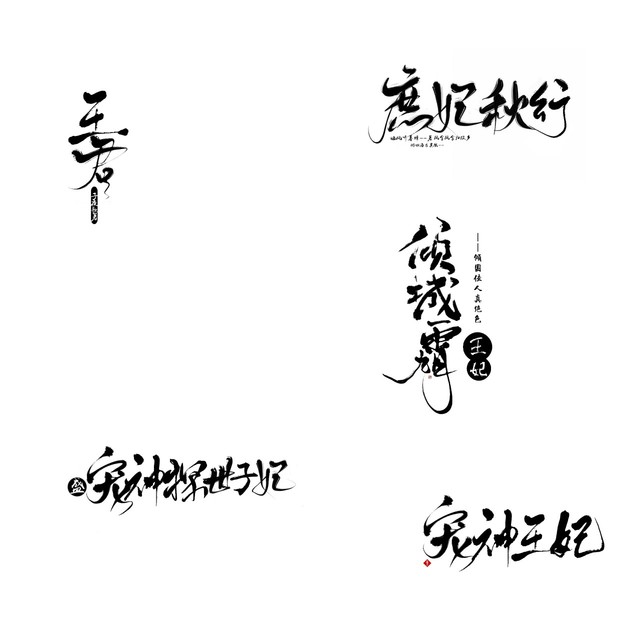 王君
庶妃秋行
倾城
——倾国佳人真绝色
王妃
盛
宠神探世子妃
宠神王妃